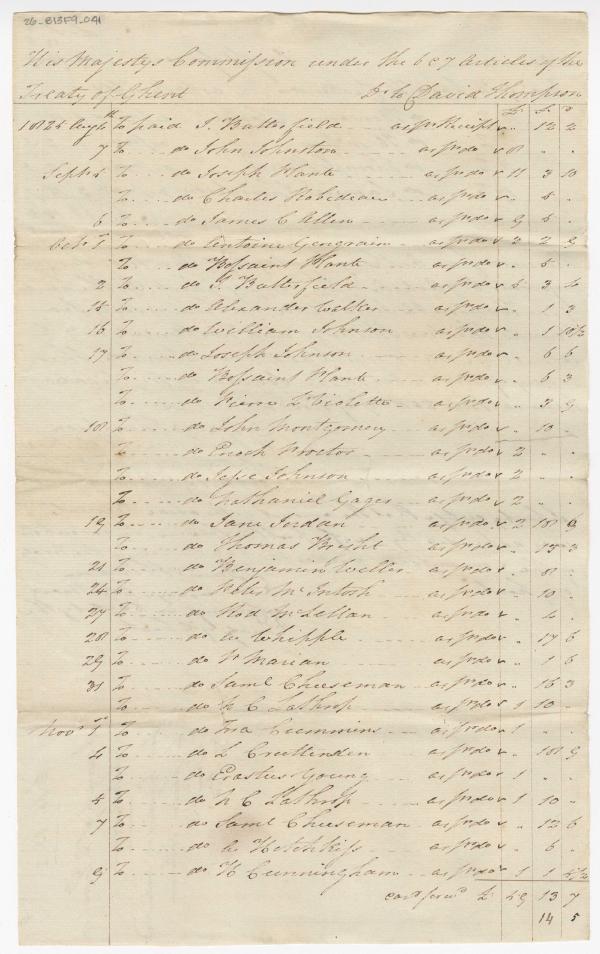 26-B13F9-041
His Majestys Commission under the 6 & 7 Articles of the
Treaty of Ghent Dr to David Thompson
£ s d
To paid J. Butterfield as pr Receipt " 12 2
7 To do John Johnston as pr do 8 " "
Septr 5 To do Joseph Plante as pr do 11 3 10
To do Charles Robideau as pr do " 5 "
6 To do James C Allen as pr do 9 5 "
Octr 1 To do Antoine Gengrain as pr do 2 2 9
To do Bossaint Plante as pr do " 5 "
2 To do J. Butterfield as pr do 5 3 4
15 To do Alexander Walker as pr do " 1 3
16 To do William Johnson as pr do " 1 10½
17 To do Joseph Johnson as pr do " 6 6
To do Bossaint Plante as pr do " 6 3
To do Pierre L'Violette as pr do " 3 9
18 To do John Montgomery as pr do " 10 "
To do Enoch Proctor as pr do 2 " "
To do Jesse Johnson as pr do 2 " "
To do Nathaniel Gages as pr do 2 " "
19 To do Jane Jordan as pr do 2 18 6
To do Thomas Bright as pr do " 15 3
21 To do Benjamin Weller as pr do " 8 "
24 To do Robt McIntosh as pr do " 10 "
27 To do Rod McLellan as pr do " 4 "
28 To do A Whipple as pr do " 17 6
29 To do P Marian as pr do " 1 6
31 To do Saml Cheeseman as pr do " 16 3
To do N C Lathrop as pr do 1 10 "
Novr 1 To do Ira Cummins as pr do 1 " "
4 To do L Cruttenden as pr do " 18 9
To do Erastus Young as pr do 1 " "
5 To do N C Lathrop as pr do 1 10 "
7 To do Saml Cheeseman as pr do " 12 6
To do A Hotchkiss as pr do " 6 "
9 To do H Cunningham as pr do 1 1 5½
card forwd £ 59 13 7
14 5